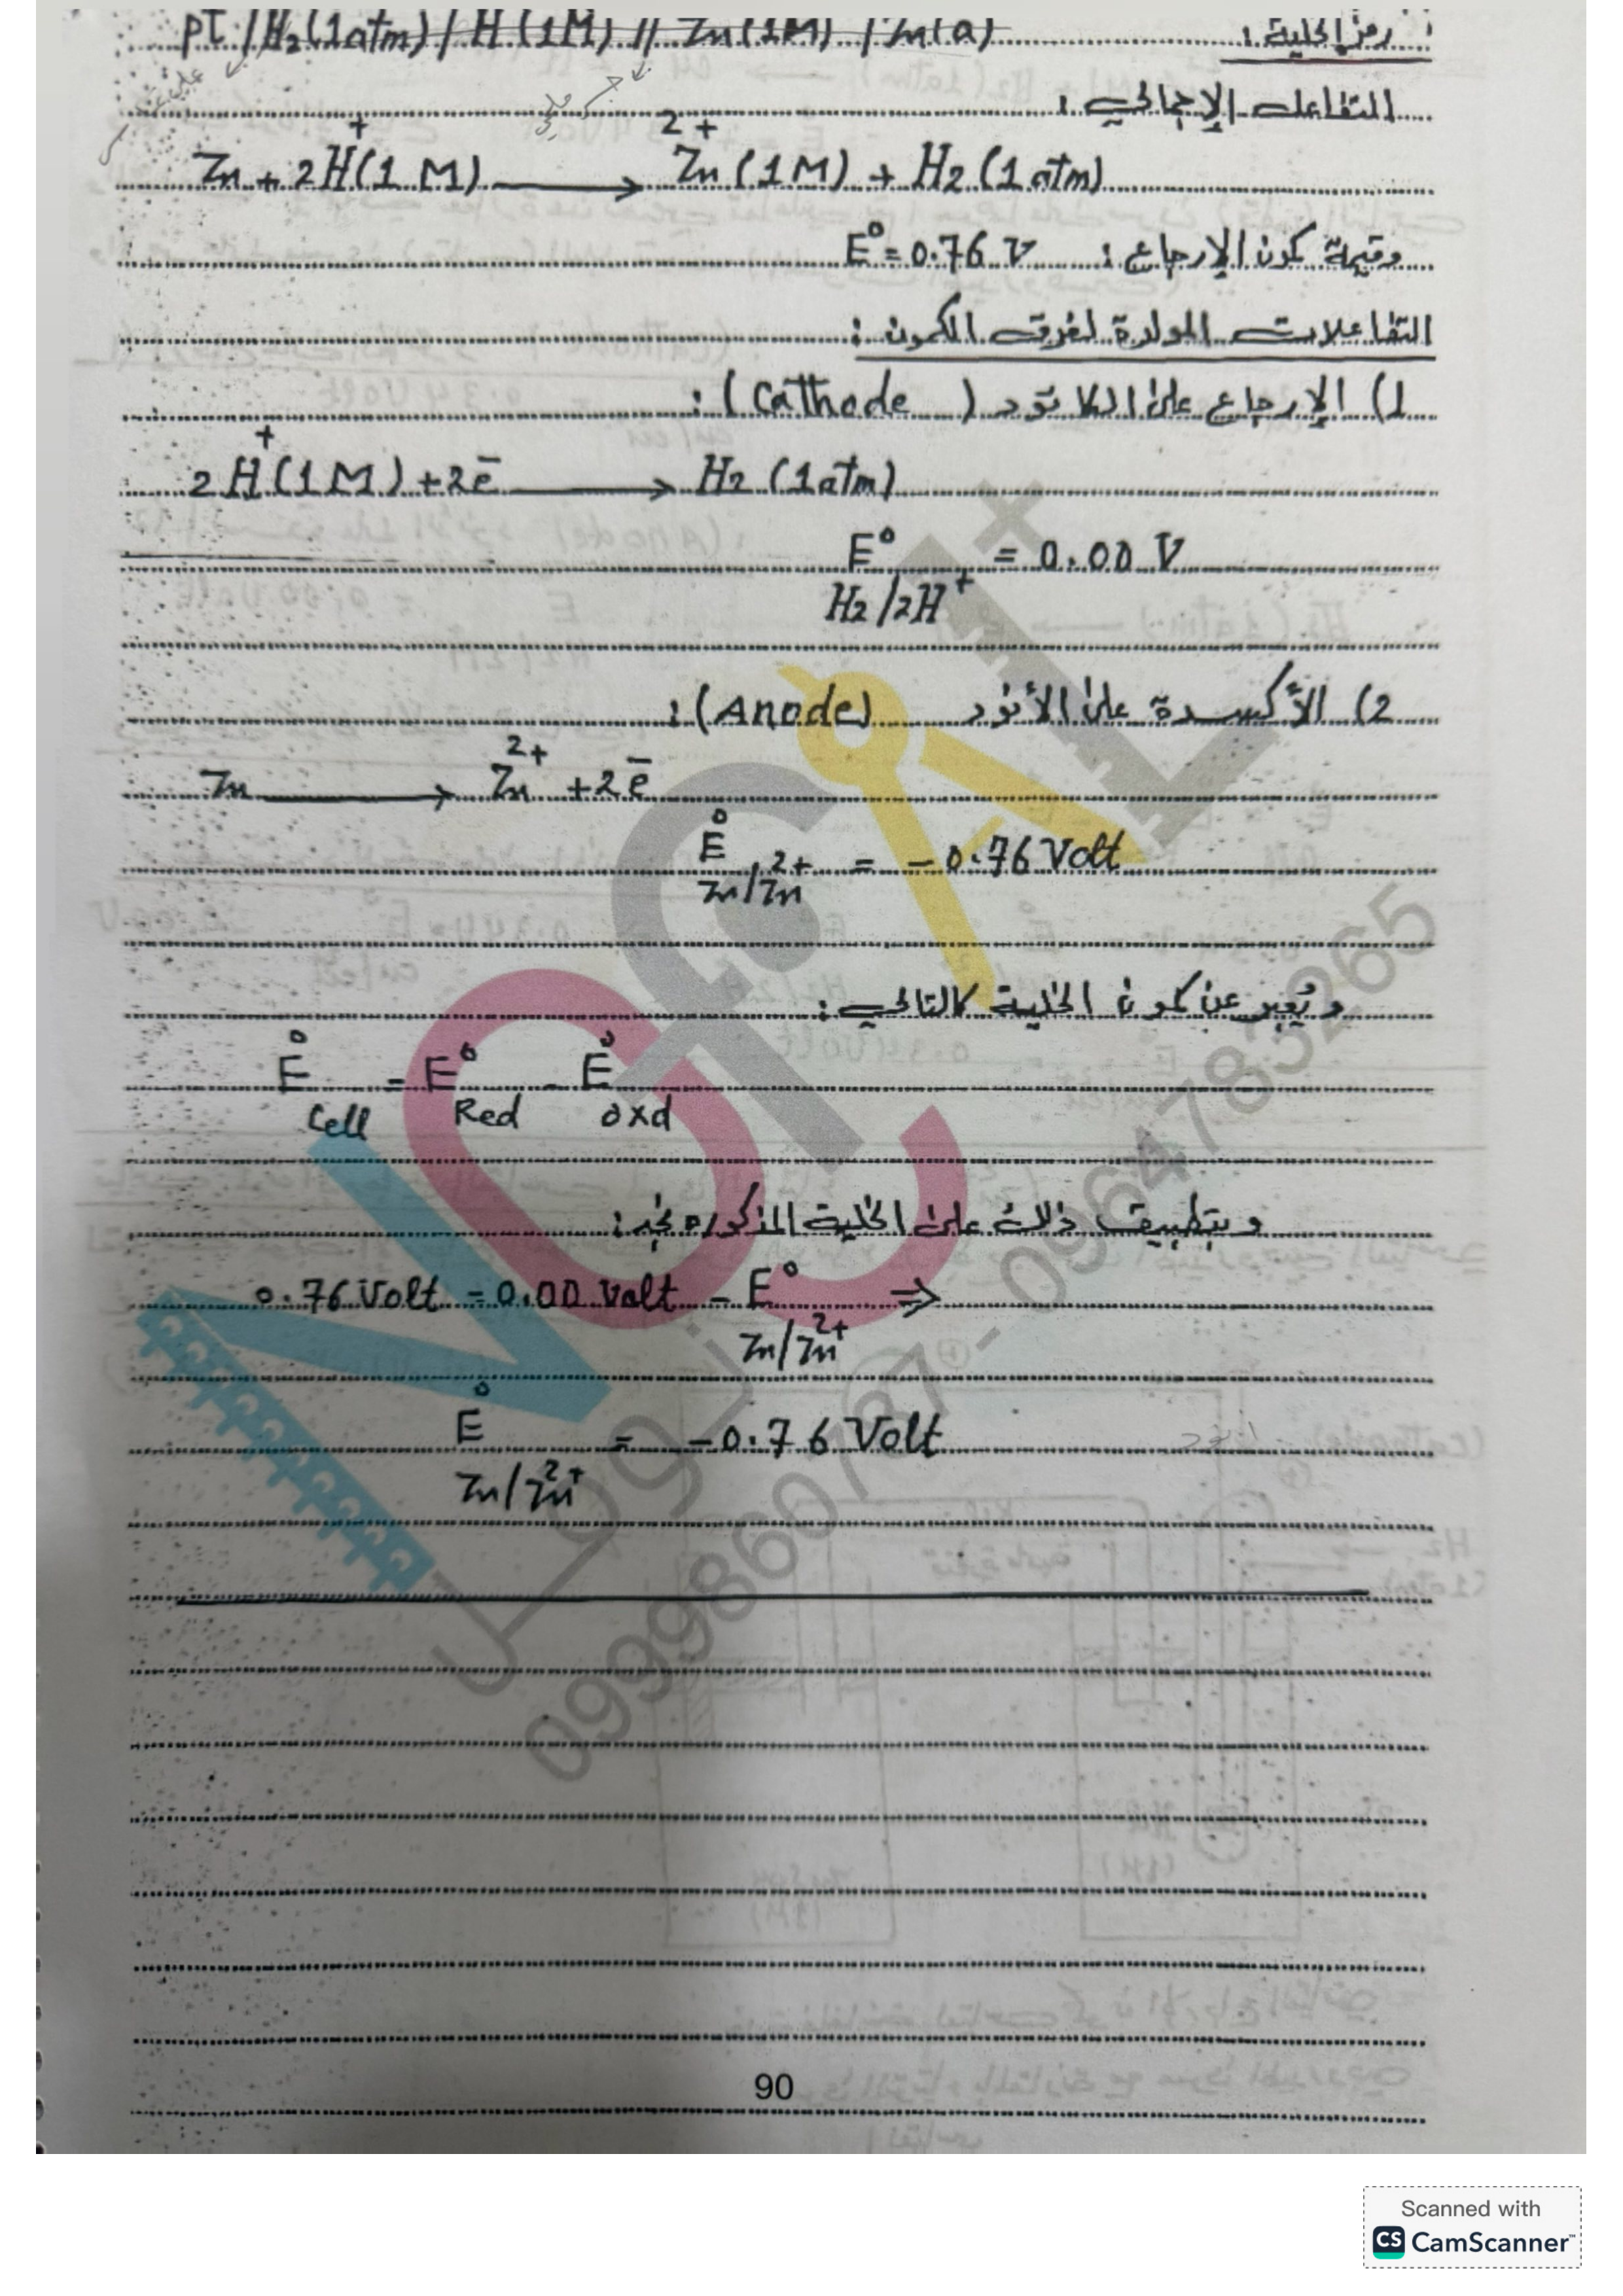 رمز الخلية :
Pt / H₂(1atm) / H⁺(1M) // Zn(1M) / Zn(a)
التفاعل الإجمالي :
Zn + 2H⁺(1 M) ⟶ Zn²⁺(1M) + H₂(1atm)
وقيمة كمون الإرجاع : E° = 0.76 V
التفاعلات المولدة لفرق الكمون :
1) الإرجاع على الكاتود (Cathode) :
2H⁺(1M) + 2e⁻ ⟶ H₂(1atm)
E° H₂/2H⁺ = 0.00 V
2) الأكسدة على الأنود (Anode) :
Zn ⟶ Zn²⁺ + 2e⁻
E° Zn/Zn²⁺ = -0.76 Volt
ويُعبر عن كمون الخلية كالتالي :
E° Cell = E° Red - E° oxd
وبتطبيق ذلك على الخلية المذكورة نجد :
0.76 Volt = 0.00 Volt - E° Zn/Zn²⁺ ⇒
E° Zn/Zn²⁺ = -0.76 Volt
90
Scanned with
CS CamScanner™